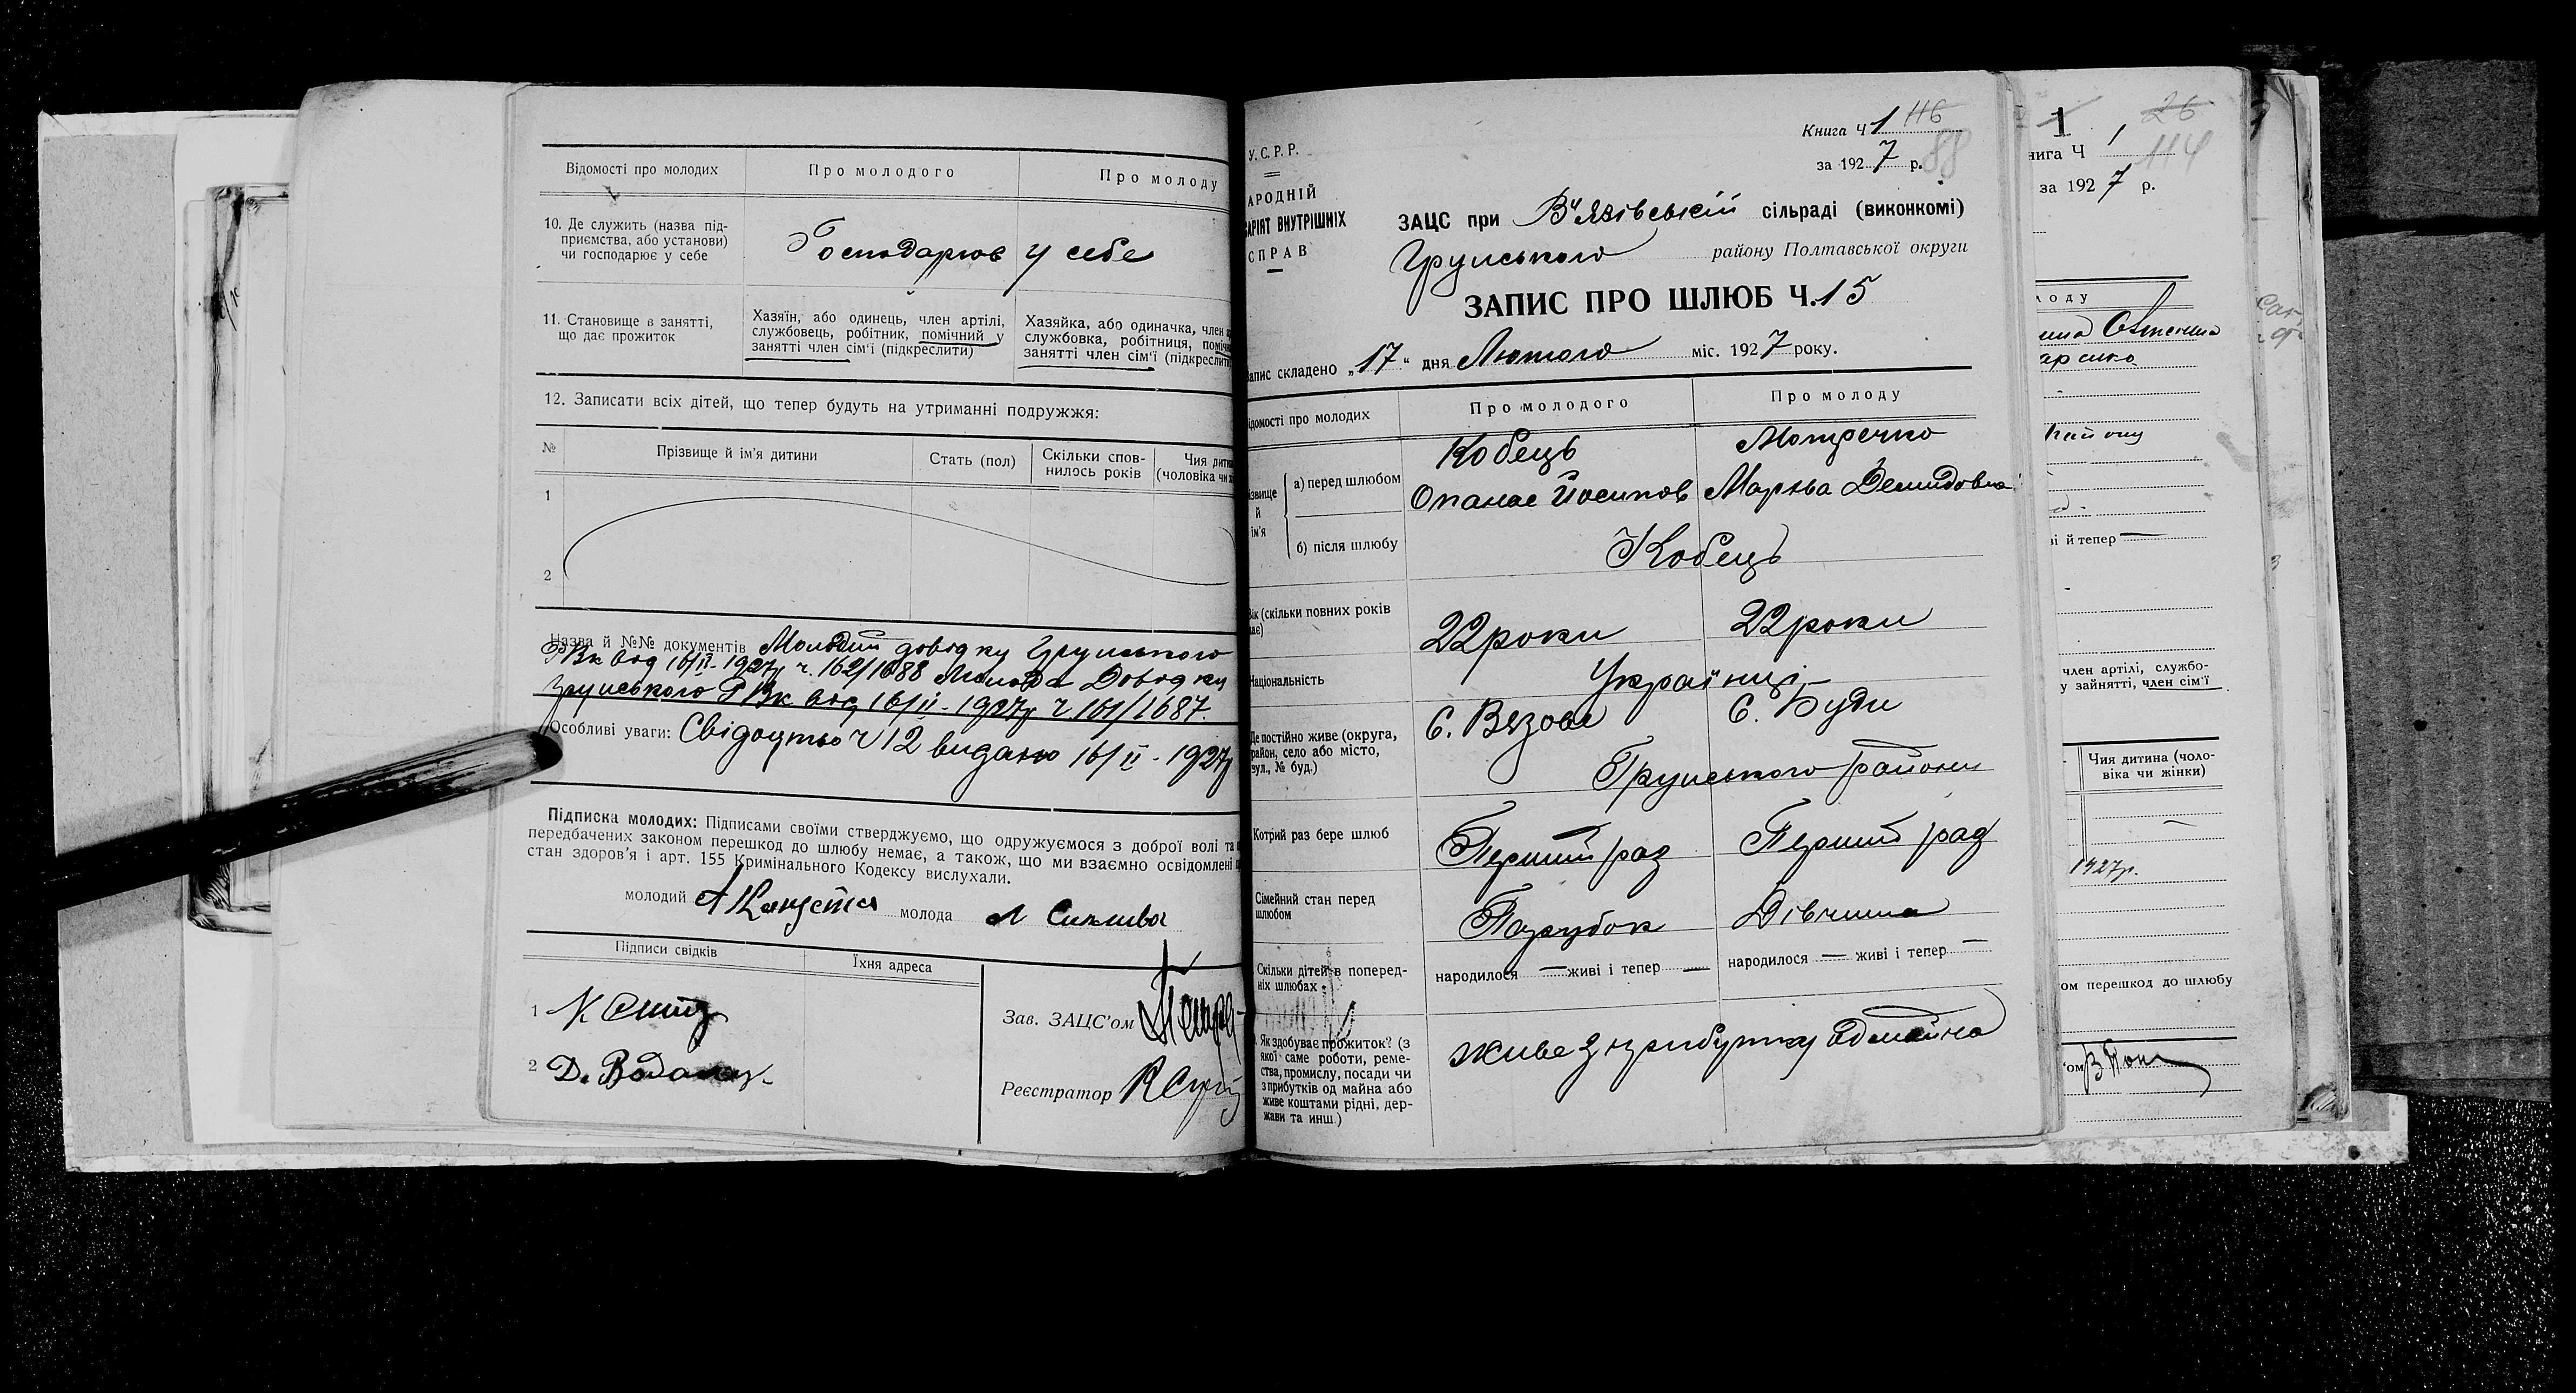 Відомості про молодих
Про молодого
Про молоду
10. Де служить (назва під-
приємства, або установи)
чи господарює у себе
Господарює у себе
11. Становище в занятті,
що дає прожиток
Хазяїн, або одинець, член артілі,
службовець, робітник, помічний у
занятті член сім'ї (підкреслити)
Хазяйка, або одиначка, член
службовка, робітниця,
занятті член сім'ї
12. Записати всіх дітей, що тепер будуть на утриманні подружжя:
№
Прізвище й ім'я дитини
Стать (пол)
Скільки спов-
нилось років
Чия
(чоловіка
1
2
Назва й №№ документів Молодий довідку Грунського
РВк від 16/II - 1927р ч. 162/1688 Молода Довідку
Грунського РВк від 16/II - 1927р ч 161/1687.
Особливі уваги: Свідоцтво ч 12 видано 16/II - 1927р
Підписка молодих: Підписами своїми стверджуємо, що одружуємося з доброї волі та
передбачених законом перешкод до шлюбу немає, а також, що ми взаємно освідомлені
стан здоров'я і арт. 155 Кримінального Кодексу вислухали.
молодий
молода
Підписи свідків
Їхня адреса
1
2 Д.
Зав. ЗАЦС'ом
Реєстратор
У.С.Р.Р.
АРОДНІЙ
АРІЯТ ВНУТРІШНІХ
СПРАВ
Книга Ч 1 116
за 1927 р. 88
ЗАЦС при В'язівській сільраді (виконкомі)
Грунського району Полтавської округи
ЗАПИС ПРО ШЛЮБ Ч. 15
апис складено „17" дня Лютого міс. 1927 року.
ідомості про молодих
Про молодого
Про молоду
ізвище
й
ім'я
а) перед шлюбом
Кобець
Опанас Йосипов
Мотречко
Марква Демидовна
б) після шлюбу
Кобець
Вік (скільки повних років
має)
22 роки
22 роки
Національність
Українці
Де постійно живе (округа,
район, село або місто,
вул., № буд.)
С. Вязове
С. Буди
Грунського району
Котрий раз бере шлюб
Перший раз
Перший раз
Сімейний стан перед
шлюбом
Парубок
Дівчина
Скільки дітей в поперед-
ніх шлюбах
народилося — живі і тепер —
народилося — живі і тепер —
Як здобуває прожиток? (з
якої саме роботи, реме-
ства, промислу, посади чи
з прибутків од майна або
живе коштами рідні, дер-
жави та инш.)
живе з прибутку од майна
1
26
нига Ч 1
114
за 1927 р.
лоду
району
ві й тепер —
член артілі, службо-
у зайнятті, член сім'ї
Чия дитина (чоло-
віка чи жінки)
1927р.
ом перешкод до шлюбу
'ом